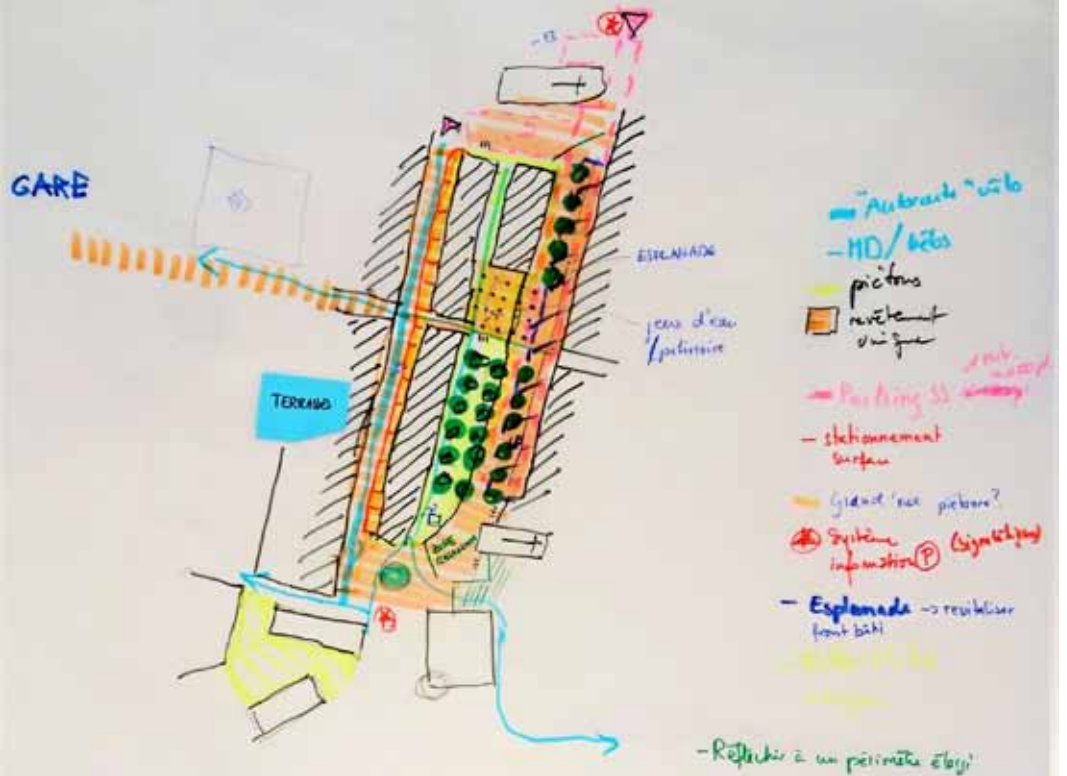 GARE
TERRADO
ESPLANADE
jeux d'eau
/patinoire
"Autoroute" vélo
- MD/vélos
piétons
revêtement
unique
- Parking SS
- stationnement
surface
Grand'rue piétonne?
Système
information (P) (signalétique)
- Esplanade -> revitaliser
front bâti
- Réfléchir à un périmètre élargi